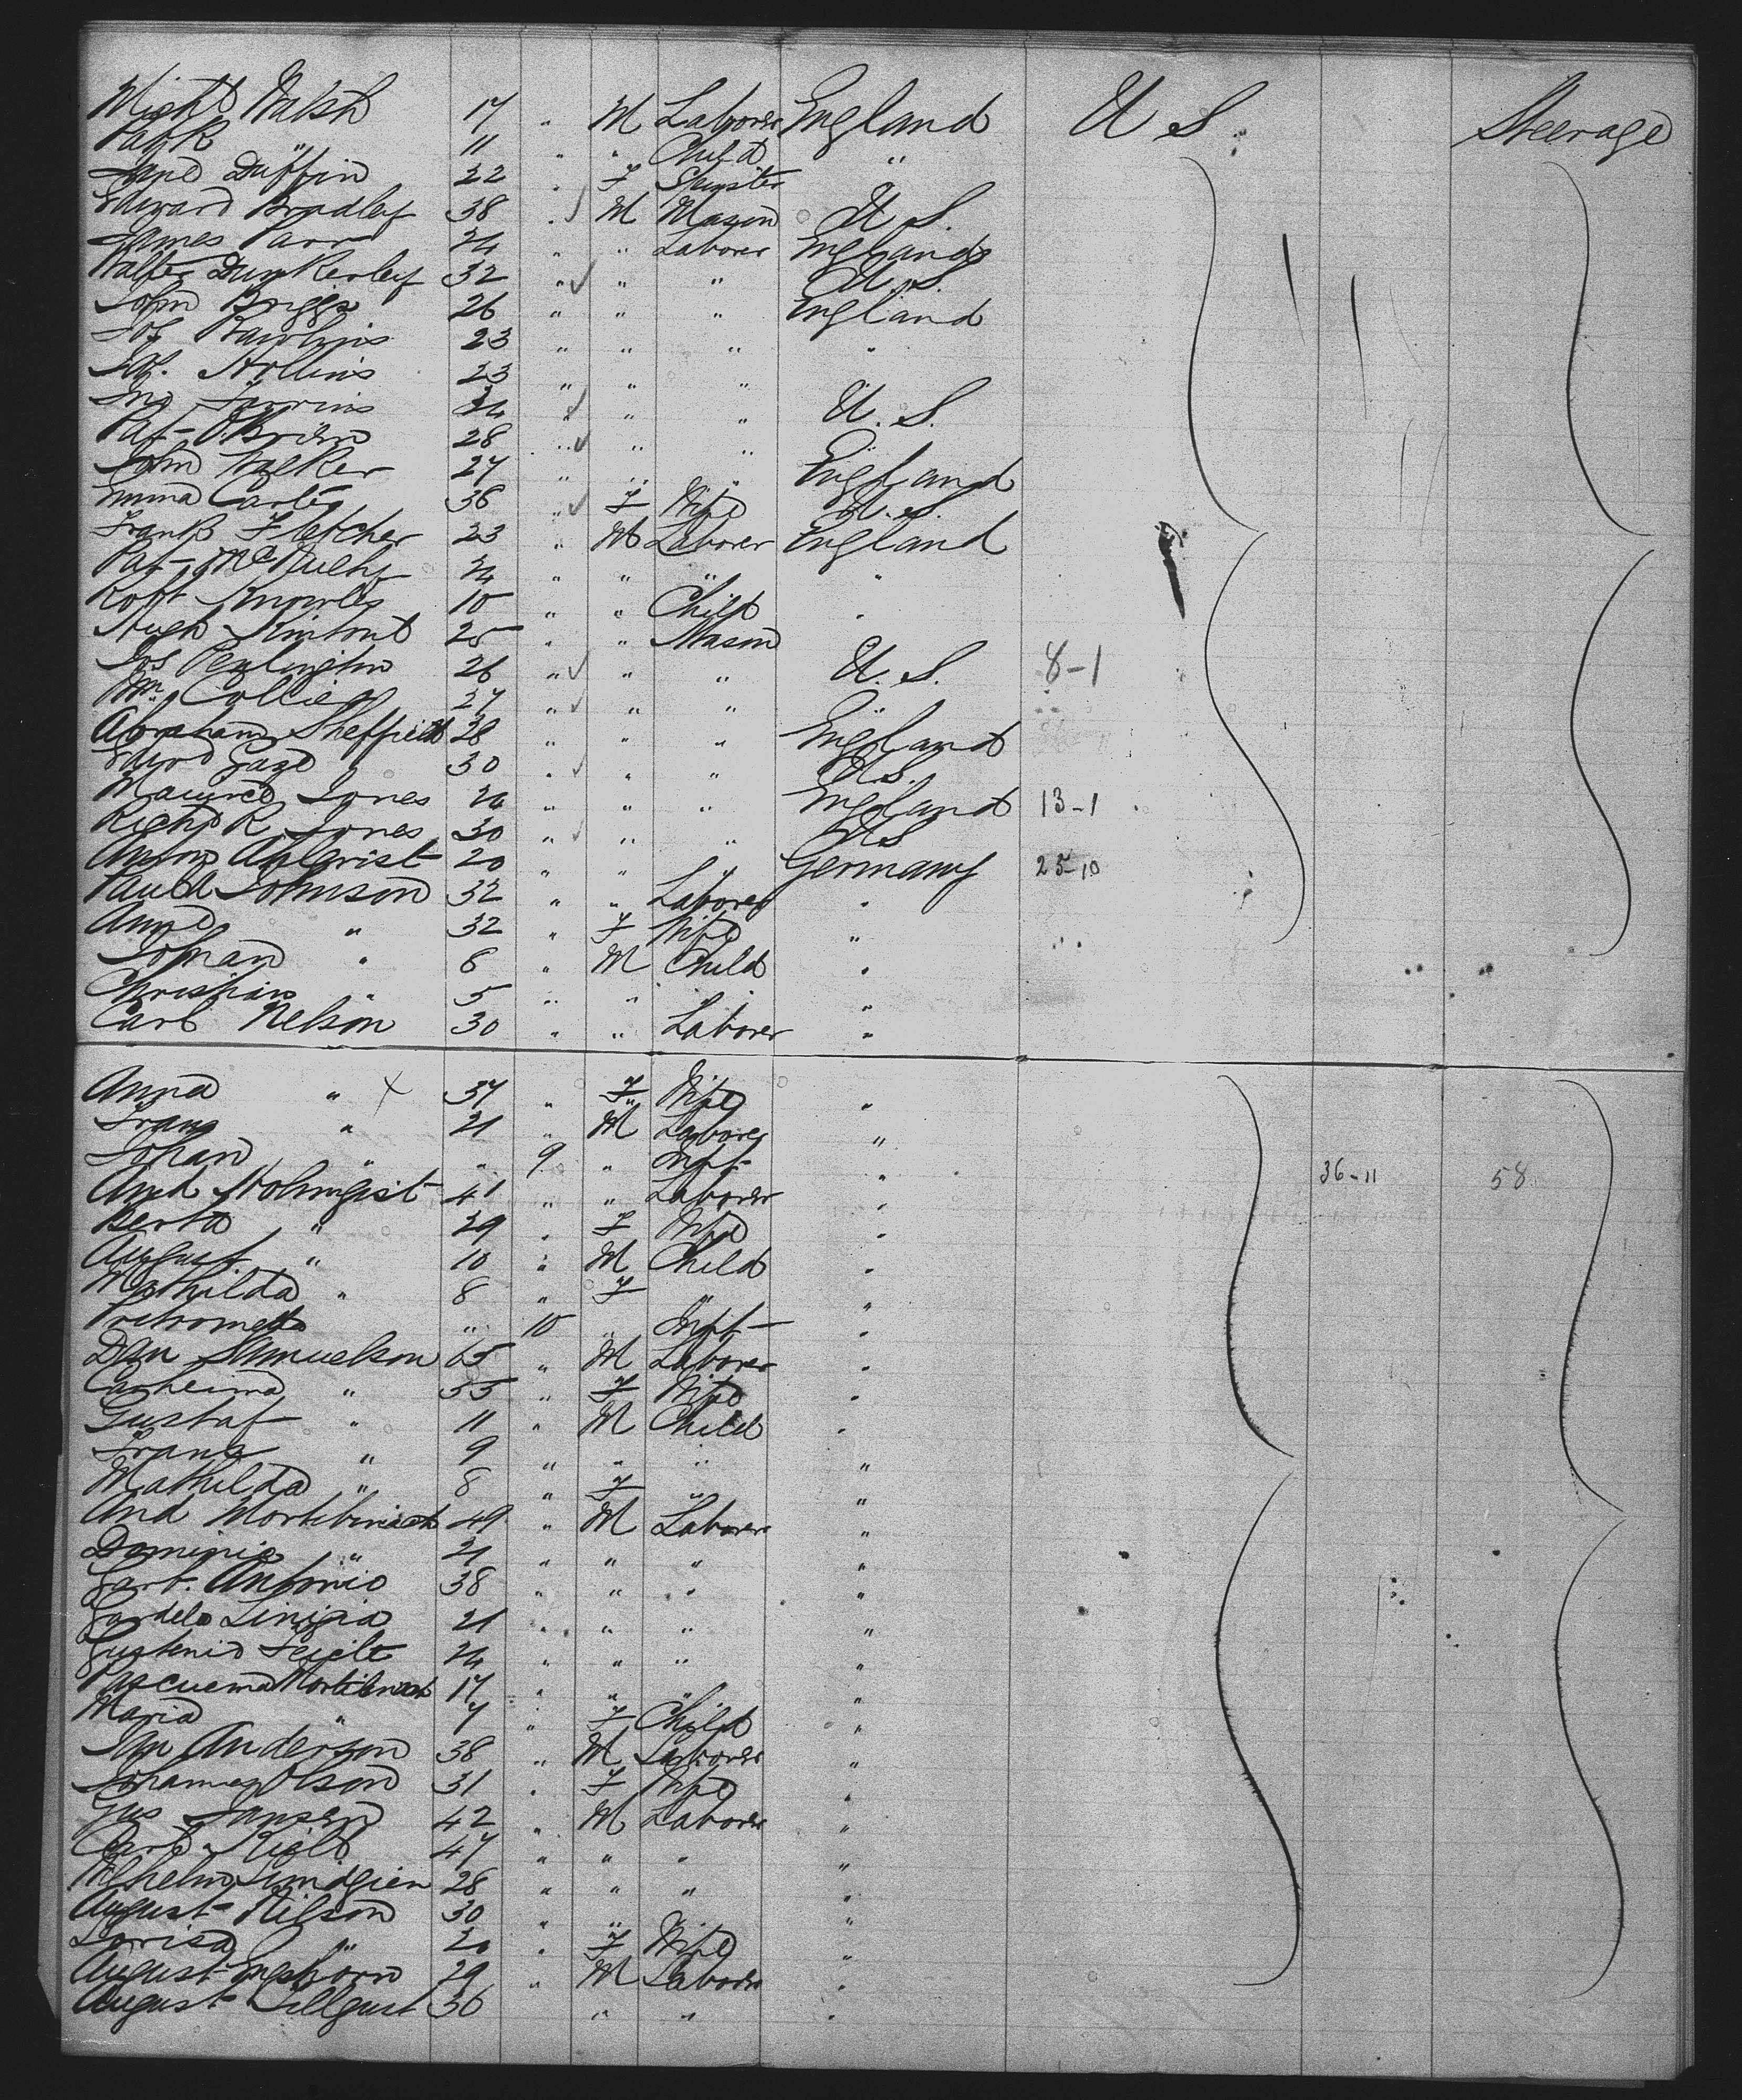 Michl Walsh 17 " M Laborer England U S. Steerage
Patk " 11 " " Child "
Jane Duffin 22 " F Spinster
Edward Bradley 38 " M Mason U. S.
James Parr 24 " " Laborer England
Walter Dunkerley 32 " " " U. S.
John Briggs 26 " " " England
Jos Rawlins 23 " " " "
Jas. Hollins 23 " " "
Jno 24 " " " U. S.
Pat- O'Brien 28 " " " "
John Walker 27 " " " England
Emma Carter 38 " F Wife U. S.
Frank Fletcher 23 " M Laborer England
Pat- McNulty 24 " " " "
Robt Knowles 10 " " Child "
Hugh 25 " " Mason
Jos Penlington 26 " " " U. S. 8-1
Wm Collier 27 " " " "
Abraham Sheffield 28 " " " England
Edwd Gaze 30 " " " U S.
Maurice Jones 24 " " " England 13-1
Richd R Jones 30 " " " U S
Anton Ahlqrist 20 " " " Germany 25-10
Paul Johnson 32 " " Laborer "
Anne " 32 " F Wife "
Johan " 8 " M Child "
Christian " 5 " " " "
Carl Nelson 30 " " Laborer "
Anna " 37 " F Wife "
Franz " 21 " M Laborer "
Johan " " 9 " Inft "
And Holmqist 41 " " Laborer " 36-11 58
Berta " 29 " F Wife "
August " 10 " M Child "
Mathilda " 8 " F " "
" 10 " Inft "
Dan Samuelson 65 " M Laborer "
" 55 " F Wife "
Gustaf " 11 " M Child "
Franz " 9 " " " "
Mathilda " 8 " F " "
And 49 " M Laborer "
Dominic " 21 " " " "
Antonio 38 " " " "
21 " " " "
24 " " " "
17 " " " "
Maria " 7 " F Child "
Jan Anderson 38 " M Laborer "
Johanna Olson 31 " F Wife "
Gus Jansen 42 " M Laborer "
Carl 47 " " " "
Wilhelm 28 " " " "
August Nilson 30 " " " "
Lovisa " 20 " F Wife "
August 29 " M Laborer "
August Lillquist 36 " " "